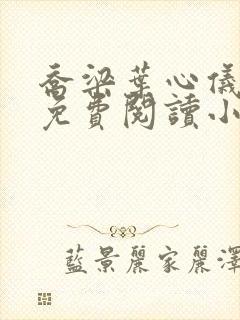 喬梁葉心儀
免費閱讀小
藍景麗家麗澤